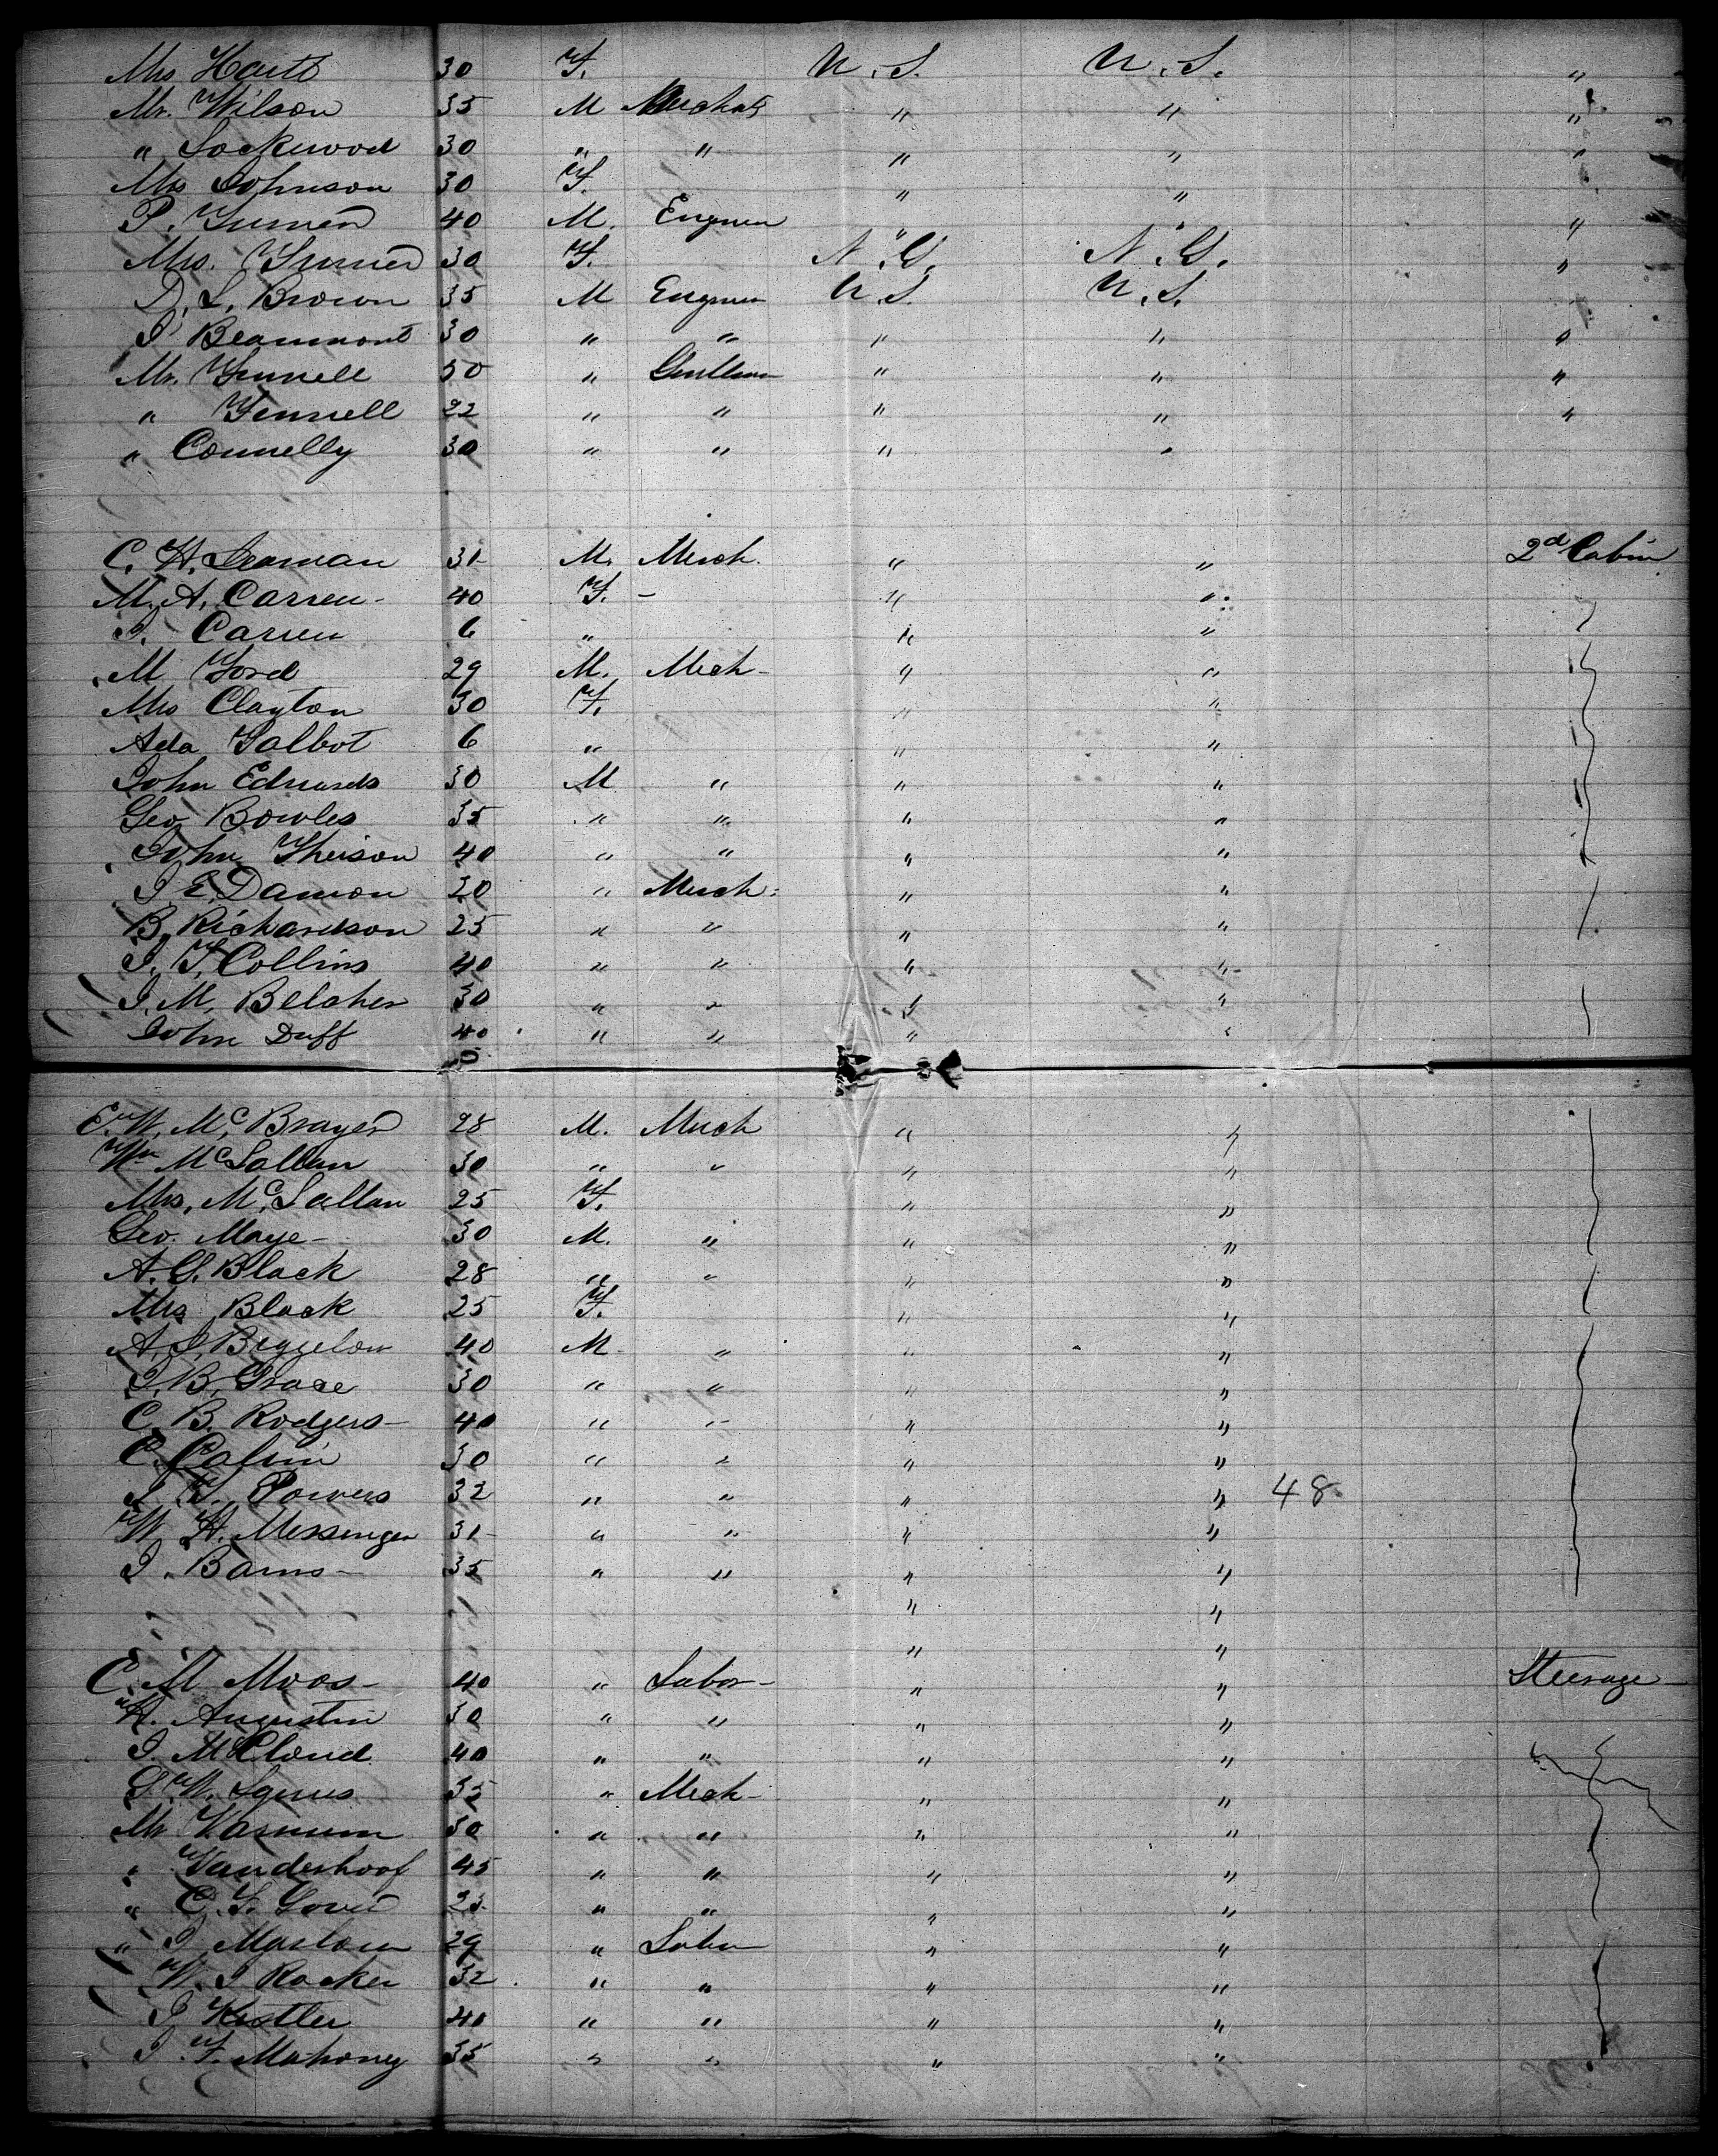 Mrs Haitt 30 F. U.S. U.S. "
Mr. Wilson 35 M Merchants " " "
" Lockwood 30 " " " " "
Mrs Johnson 30 F. " " "
P. Turner 40 M. Engineer " " "
Mrs. Turner 30 F. N.G. N.G. "
D. L. Brown 35 M Engineer U.S. U.S.
J Beaumont 30 " " " " "
Mr. Fennell 50 " Gentleman " " "
" Fennell 22 " " " " "
" Connelly 30 " " " "
C. H. Seaman 31 M. Mech. " " 2d Cabin
M. A. Carren 40 F. - " "
J. Carren 6 " " "
M Ford 29 M. Mech - " "
Mrs Clayton 30 F. " "
Ada Talbot 6 " " "
John Edwards 30 M " " "
Geo Bowles 35 " " " "
John Theison 40 " " " "
J E. Damon 30 " Mech. " "
B. Richardson 25 " " " "
J. T. Collins 40 " " " "
J. M. Belcher 30 " " " "
John Duff 40 " " " "
E. W. Mc Brayer 28 M. Mech " "
Wm McLallan 30 " " " "
Mrs. Mc Lallan 25 F. " "
Geo. Maye - 30 M. " " "
A. G. Black 28 " " " "
Mrs Black 25 F. " "
A. J. Biggelow 40 M " " "
J. B. Grace 30 " " " "
C. B. Rodgers - 40 " " " "
C. Calvin 30 " " " "
J. T. Powers 32 " " " " 48
W. H. Messenger 31 " " " "
J. Barns - 35 " " " "
" "
" "
C. M Moos - 40 " Labor - " " Steerage
H. Augustin 30 " " " "
J. McCloud 40 " " " "
G. W. Squires 35 " Mech - " "
Mr Varnum 30 " " " "
" Vanderhoof 45 " " " "
" C. F. Govet 23 " " " "
" J Marlow 29 " Labor " "
W. J Rocker 32 " " " "
J Kistler 40 " " " "
J. F. Mahoney 35 " " " "